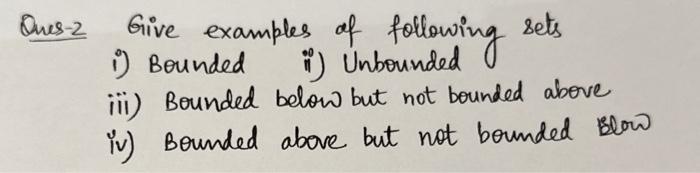 Ques-2 Give examples of following sets
i) Bounded ii) Unbounded
iii) Bounded below but not bounded above
iv) Bounded above but not bounded Blow